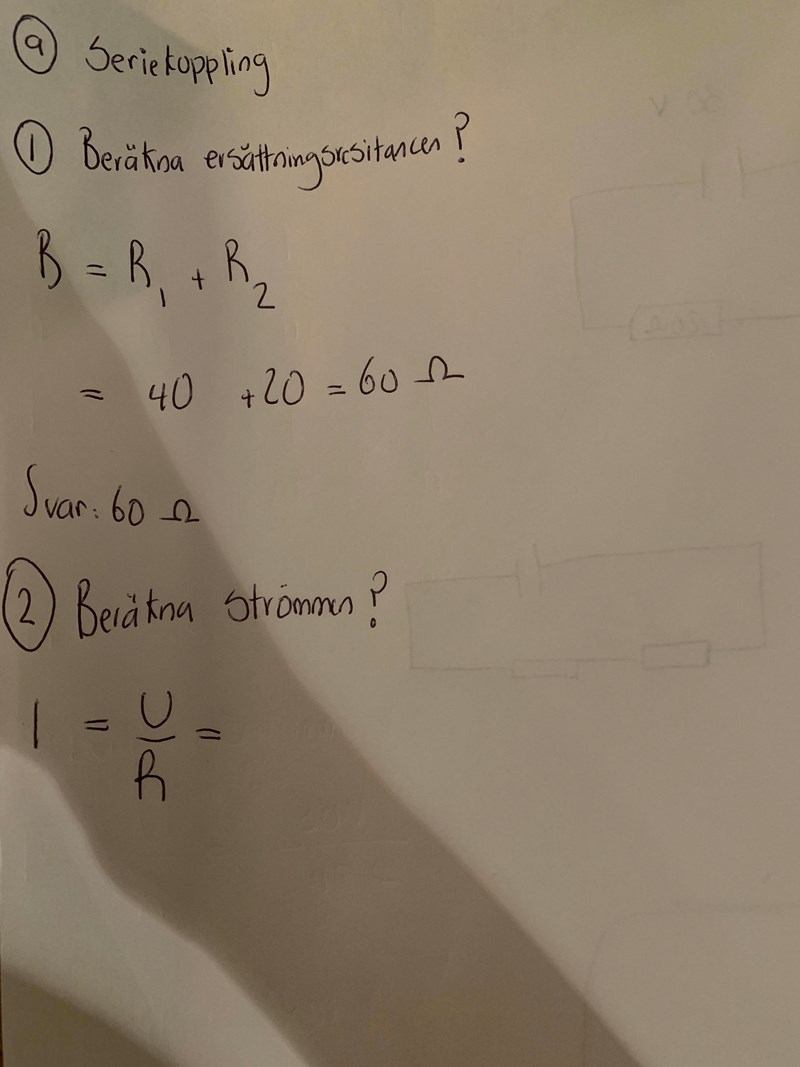 a Seriekoppling
1 Beräkna ersättningsresitancen?
R = R1 + R2
= 40 +20 = 60 Ω
Svar: 60 Ω
2 Beräkna strömmen?
I = U/R =